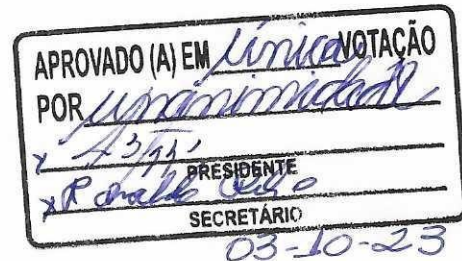 APROVADO (A) EM Única VOTAÇÃO
POR unanimidade
x
PRESIDENTE
x Ronaldo
SECRETÁRIO
03-10-23